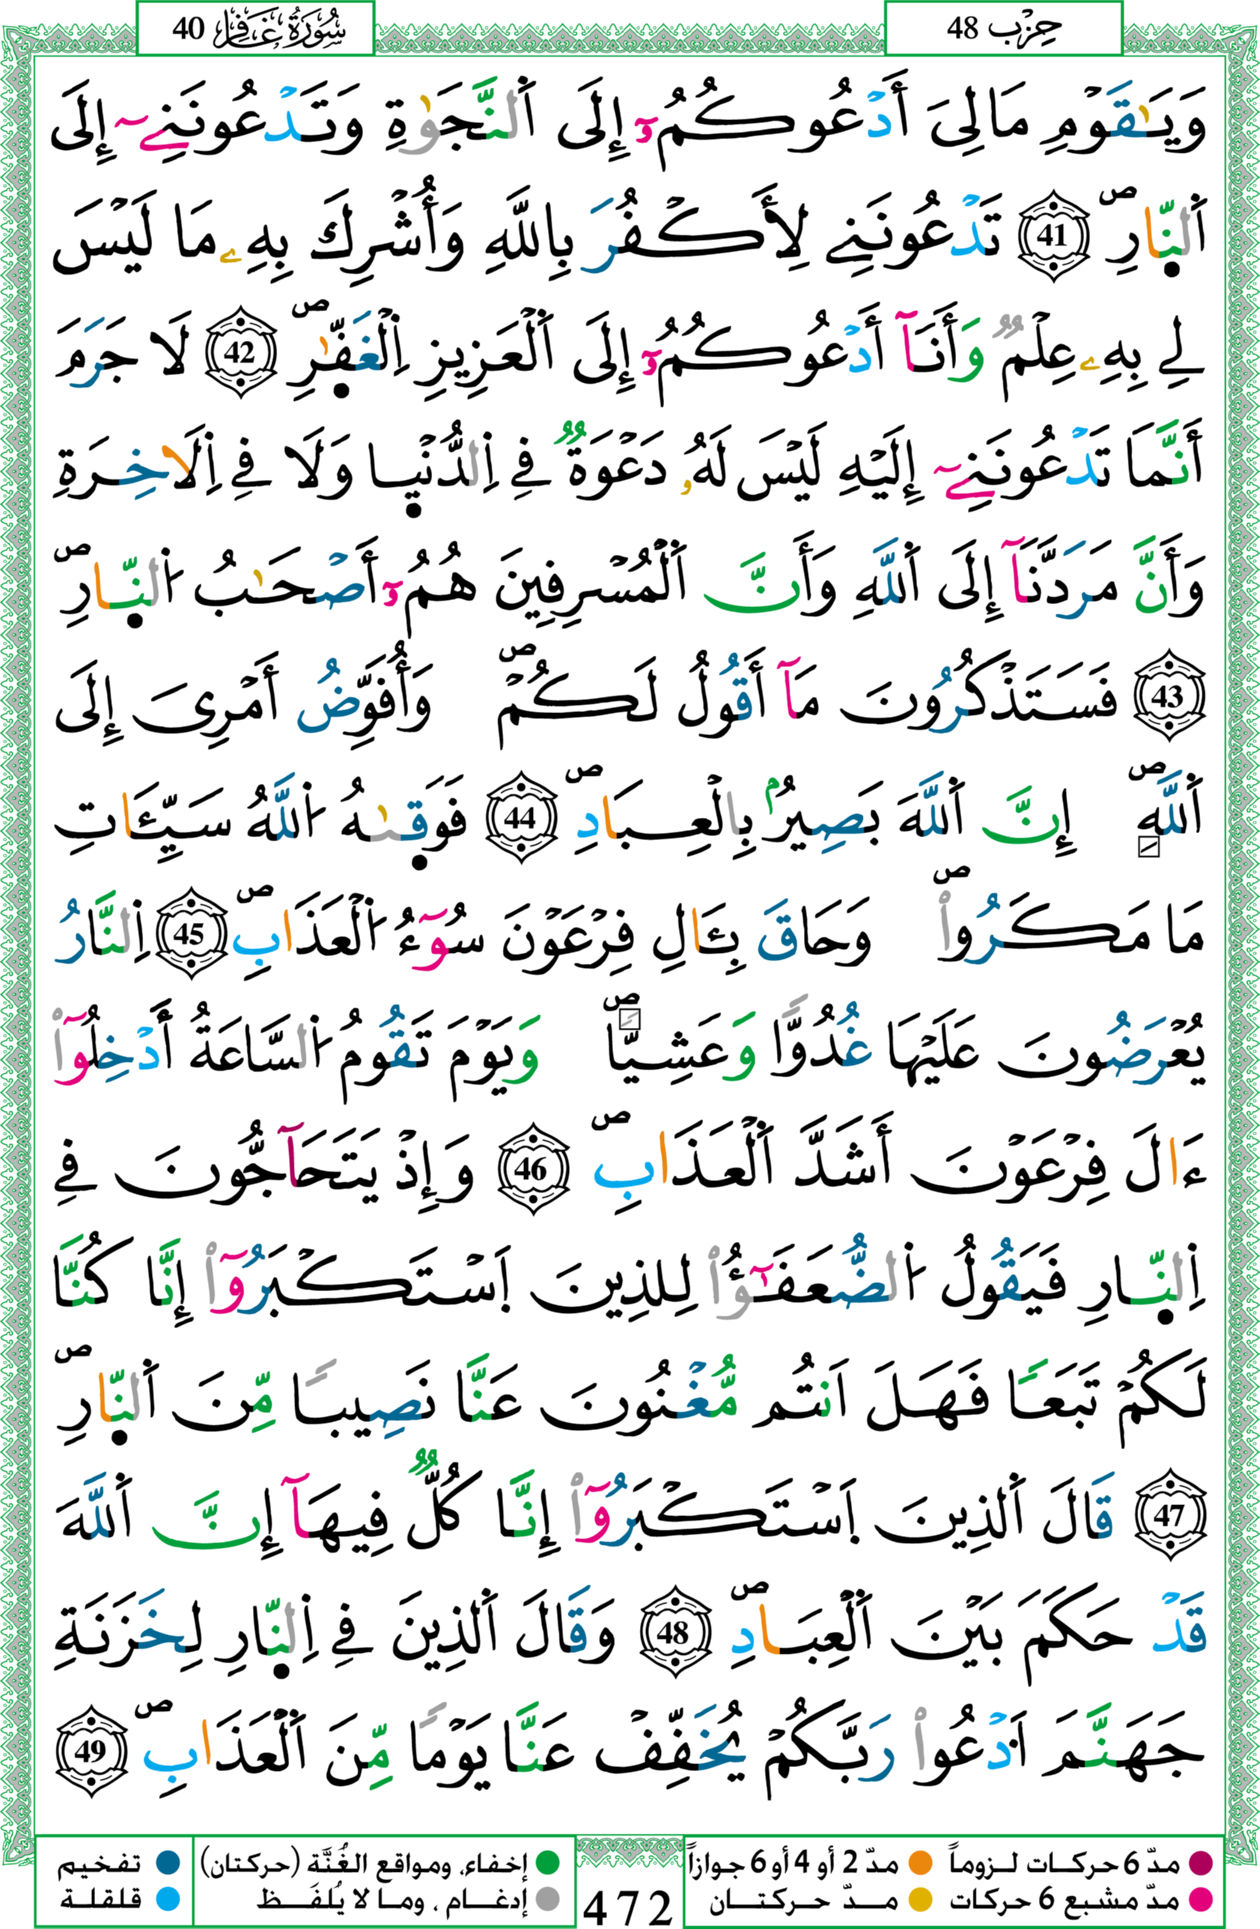 سُورَةُ غَافِر 40
حِزْب 48
وَيَٰقَوْمِ مَا لِىَ أَدْعُوكُمُۥٓ إِلَى اَلنَّجَوٰةِ وَتَدْعُونَنِےٓ إِلَى
اَلنّ۪ارِۖ 41 تَدْعُونَنِے لِأَكْفُرَ بِاللَّهِ وَأُشْرِكَ بِهِۦ مَا لَيْسَ
لِے بِهِۦ عِلْمٌ وَأَنَآ أَدْعُوكُمُۥٓ إِلَى اَلْعَزِيزِ اِلْغَفّٰ۪رِۖ 42 لَا جَرَمَ
أَنَّمَا تَدْعُونَنِےٓ إِلَيْهِ لَيْسَ لَهُۥ دَعْوَةٌ فِے اِلدُّنْي۪ا وَلَا فِے اِلَاخِرَةِ
وَأَنَّ مَرَدَّنَآ إِلَى اَللَّهِ وَأَنَّ اَلْمُسْرِفِينَ هُمُۥٓ أَصْحَٰبُ اُلنّ۪ارِۖ
43 فَسَتَذْكُرُونَ مَآ أَقُولُ لَكُمْۖ وَأُفَوِّضُ أَمْرِىَ إِلَى
اَللَّهِۖ إِنَّ اَللَّهَ بَصِيرُۢ بِالْعِبَادِۖ 44 فَوَق۪ىٰهُ اُللَّهُ سَيِّـَٔاتِ
مَا مَكَرُواْۖ وَحَاقَ بِـَٔالِ فِرْعَوْنَ سُوٓءُ اُلْعَذَابِۖ 45 اِلنَّارُ
يُعْرَضُونَ عَلَيْهَا غُدُوًّا وَعَشِيًّاۖ وَيَوْمَ تَقُومُ اُلسَّاعَةُ أَدْخِلُوٓاْ
ءَالَ فِرْعَوْنَ أَشَدَّ اَلْعَذَابِۖ 46 وَإِذْ يَتَحَآجُّونَ فِے
اِلنّ۪ارِ فَيَقُولُ اُلضُّعَفَٰٓؤُاْ لِلذِينَ اَسْتَكْبَرُوٓاْ إِنَّا كُنَّا
لَكُمْ تَبَعًا فَهَلَ اَنتُم مُّغْنُونَ عَنَّا نَصِيبًا مِّنَ اَلنّ۪ارِۖ
47 قَالَ اَلذِينَ اَسْتَكْبَرُوٓاْ إِنَّا كُلٌّ فِيهَآ إِنَّ اَللَّهَ
قَدْ حَكَمَ بَيْنَ اَلْعِبَادِۖ 48 وَقَالَ اَلذِينَ فِے اِلنّ۪ارِ لِخَزَنَةِ
جَهَنَّمَ اَدْعُواْ رَبَّكُمْ يُخَفِّفْ عَنَّا يَوْمًا مِّنَ اَلْعَذَابِۖ 49
مدّ 6 حركات لـزوماً مدّ 2 أو 4 أو 6 جوازاً
مدّ مشبع 6 حركات مـدّ حركتـان
472
إخفاء، ومواقع الغُنَّة (حركتان) تفخيم
إدغـام ، ومـا لا يُلفَـظ قلقلـة